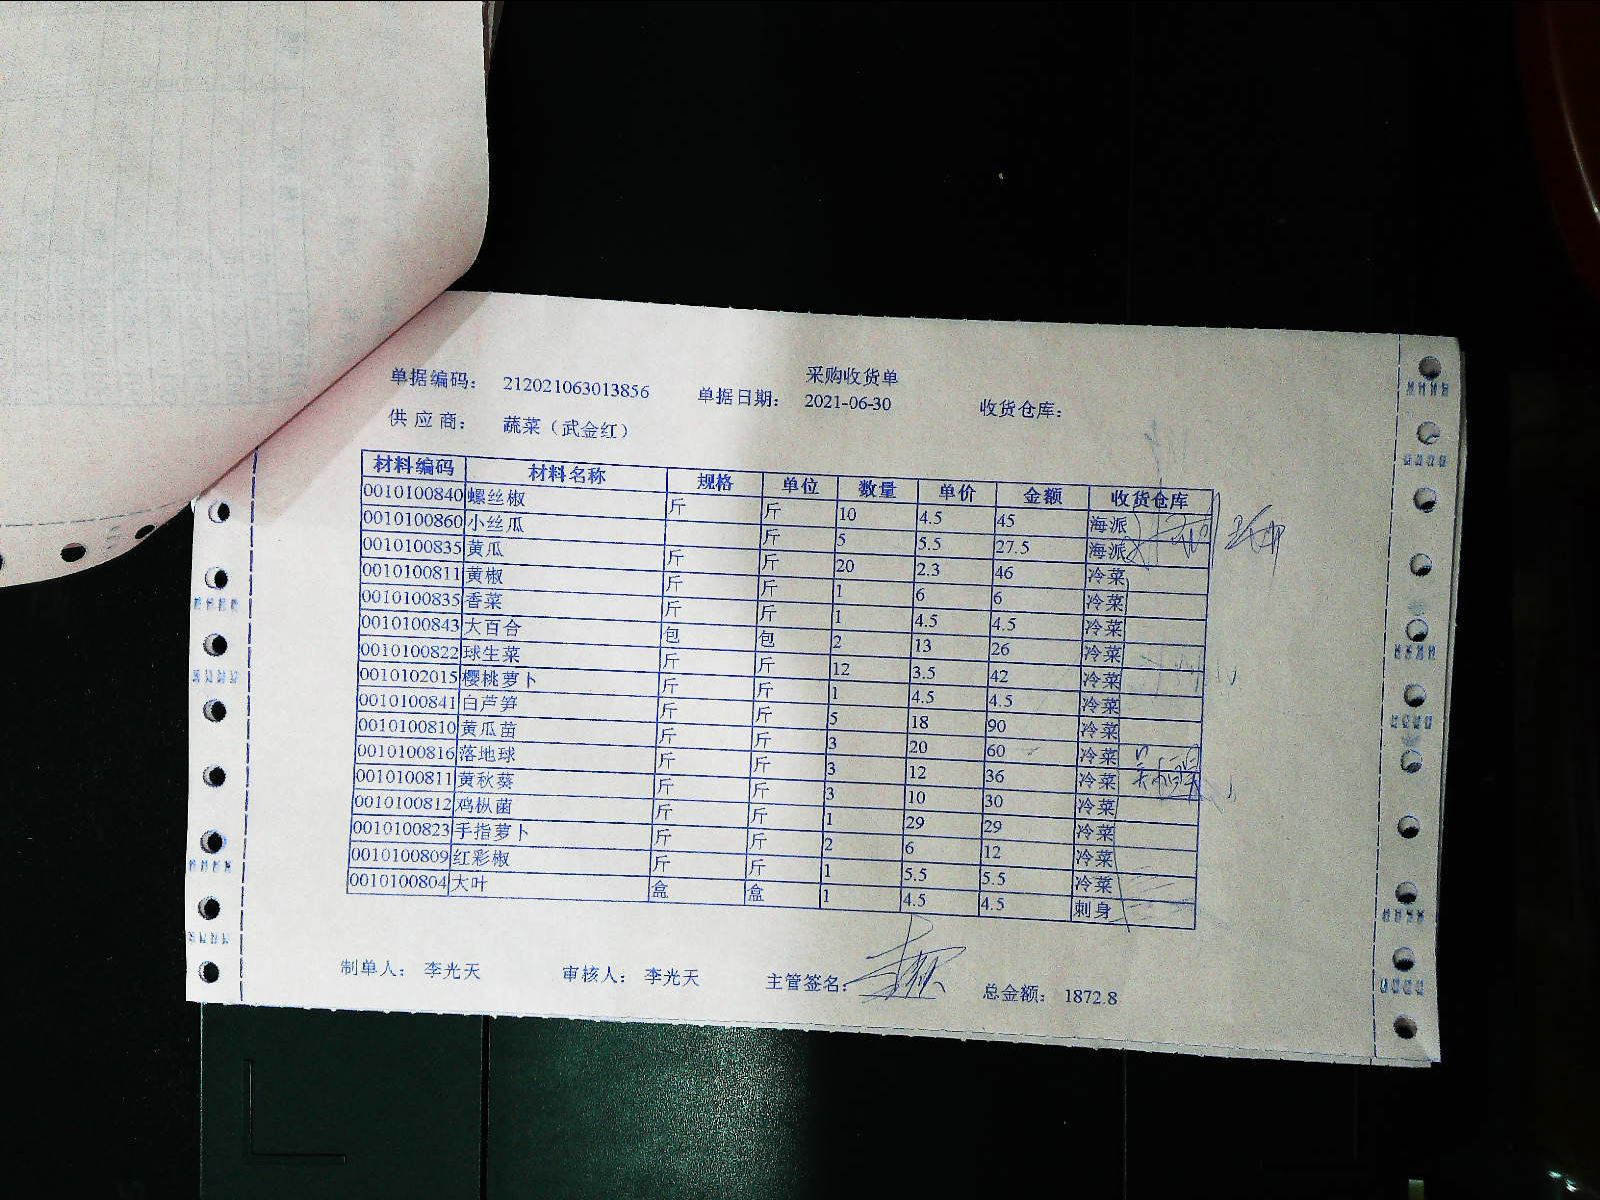 采购收货单
单据编码： 212021063013856 单据日期： 2021-06-30 收货仓库：
供 应 商： 蔬菜（武金红）
材料编码 材料名称 规格 单位 数量 单价 金额 收货仓库
0010100840 螺丝椒 斤 斤 10 4.5 45 海派
0010100860 小丝瓜 斤 5 5.5 27.5 海派
0010100835 黄瓜 斤 斤 20 2.3 46 冷菜
0010100811 黄椒 斤 斤 1 6 6 冷菜
0010100835 香菜 斤 斤 1 4.5 4.5 冷菜
0010100843 大百合 包 包 2 13 26 冷菜
0010100822 球生菜 斤 斤 12 3.5 42 冷菜
0010102015 樱桃萝卜 斤 斤 1 4.5 4.5 冷菜
0010100841 白芦笋 斤 斤 5 18 90 冷菜
0010100810 黄瓜苗 斤 斤 3 20 60 冷菜
0010100816 落地球 斤 斤 3 12 36 冷菜
0010100811 黄秋葵 斤 斤 3 10 30 冷菜
0010100812 鸡枞菌 斤 斤 1 29 29 冷菜
0010100823 手指萝卜 斤 斤 2 6 12 冷菜
0010100809 红彩椒 斤 斤 1 5.5 5.5 冷菜
0010100804 大叶 盒 盒 1 4.5 4.5 刺身
制单人： 李光天 审核人： 李光天 主管签名： 总金额： 1872.8